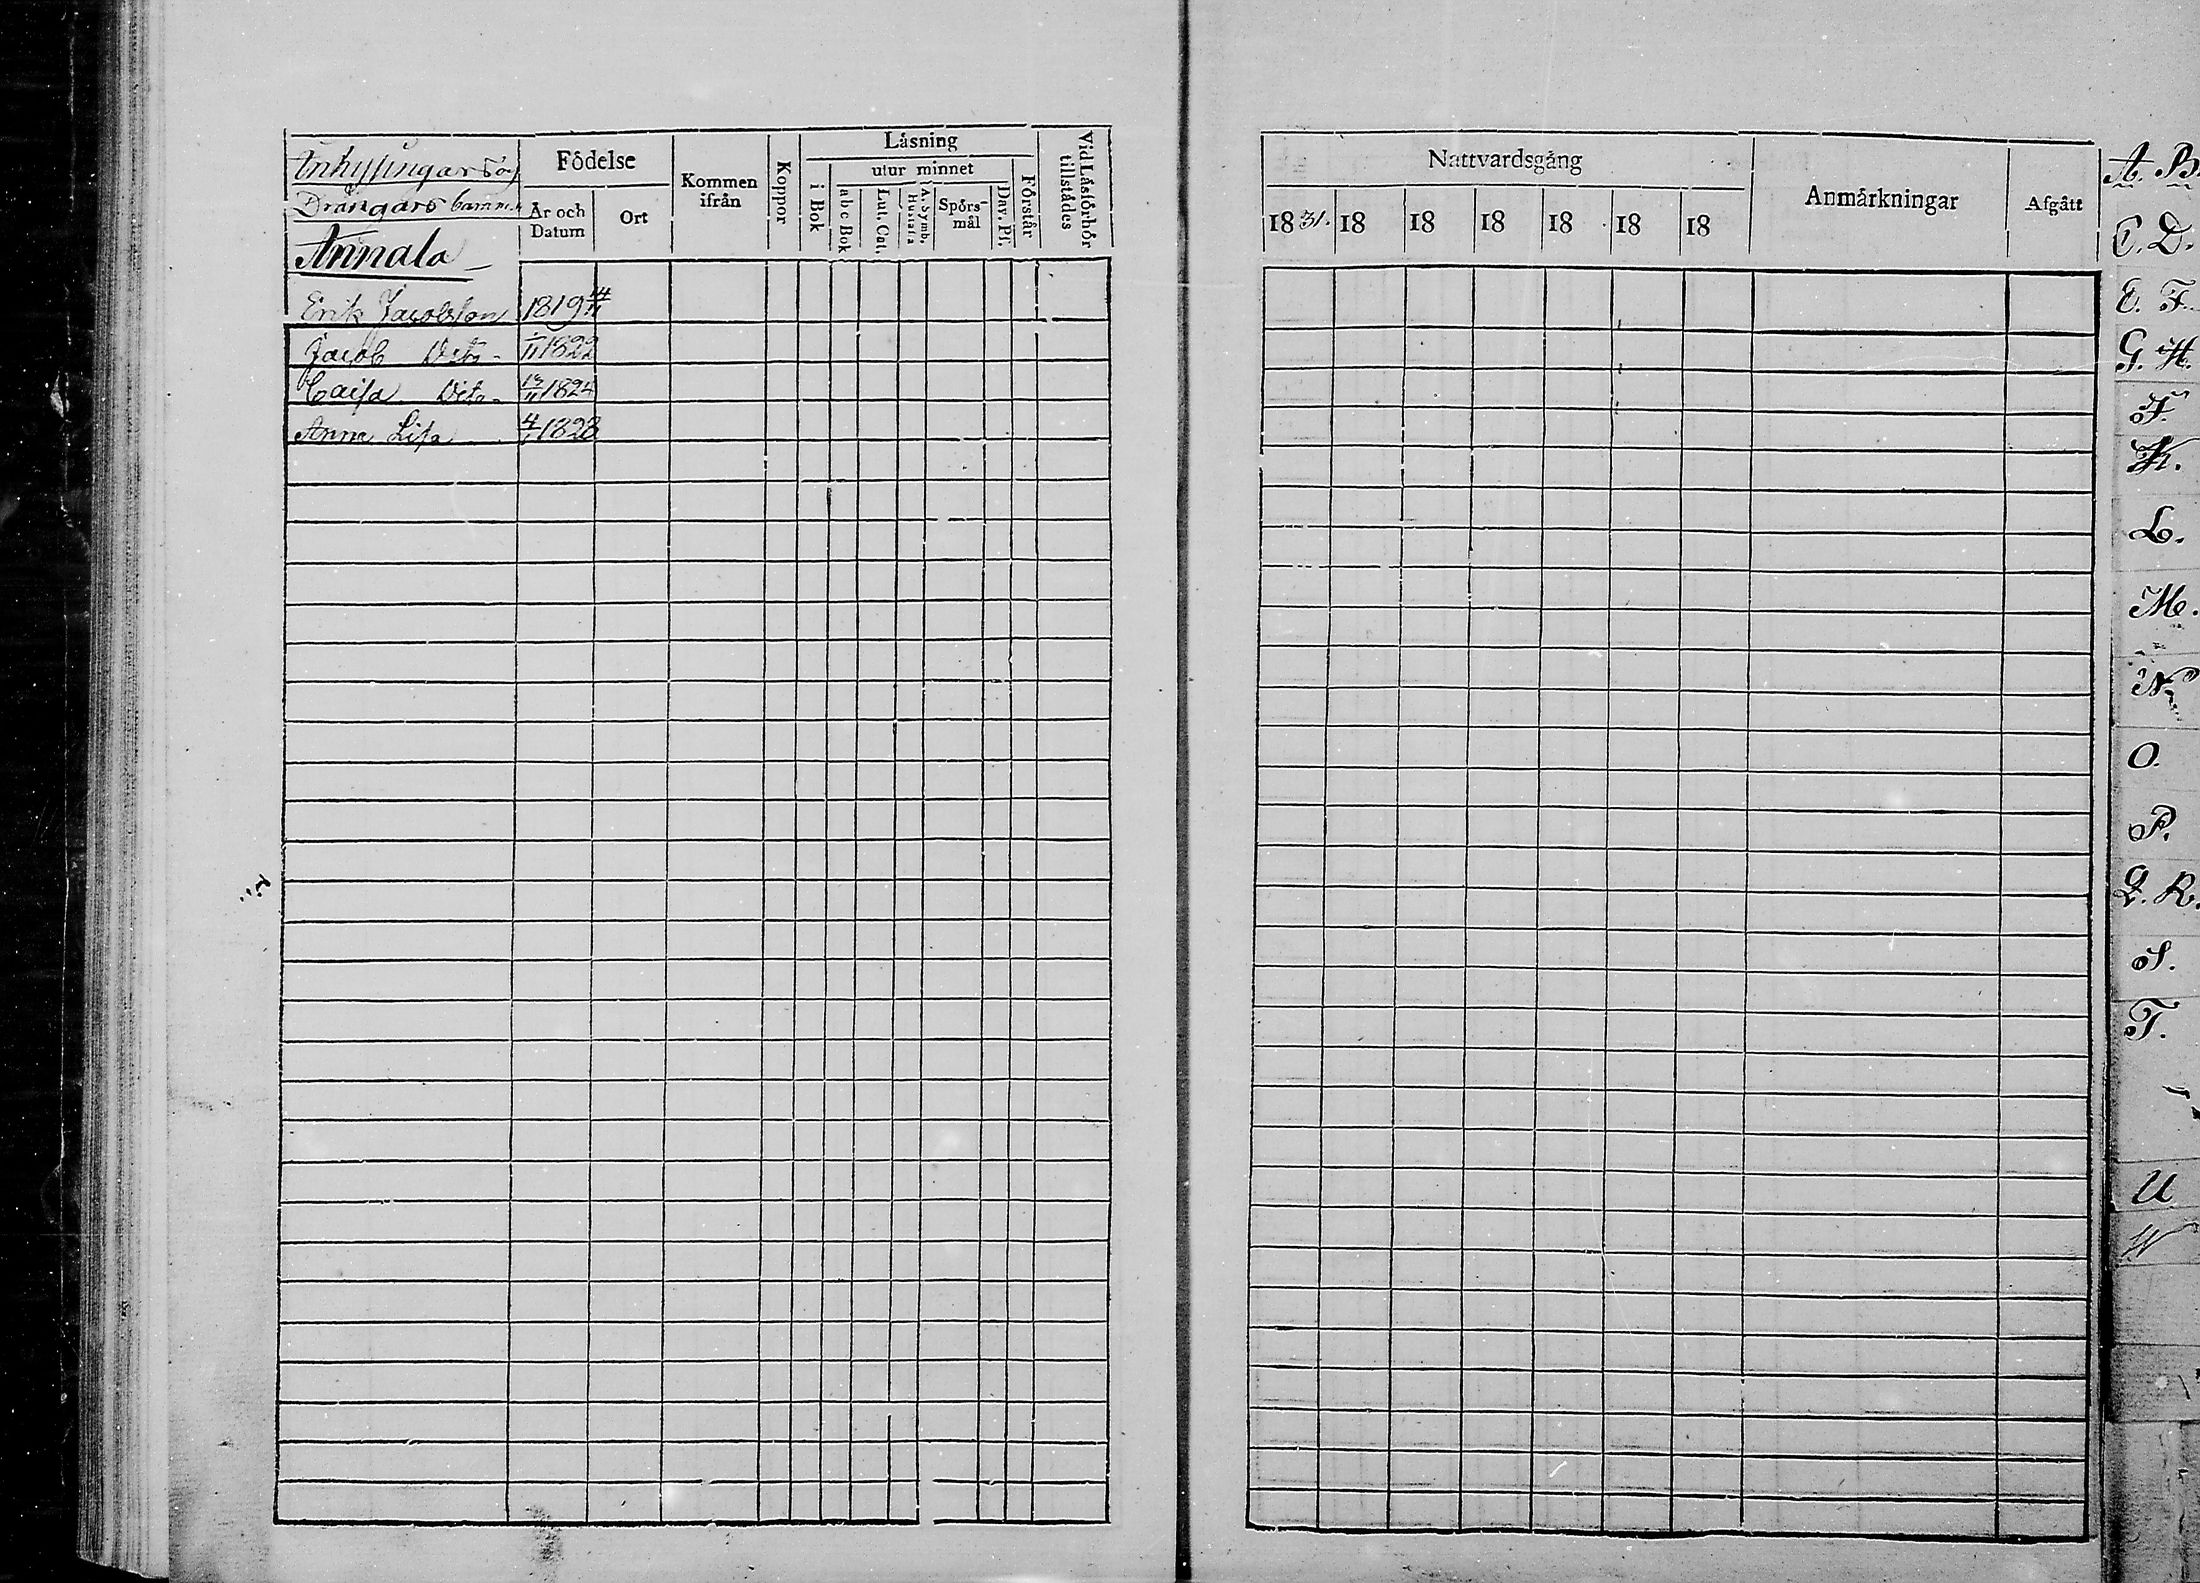 Inhysingars och
Drängars barn
Annala
Födelse
År och Datum
Ort
Kommen ifrån
Koppor
Läsning
i Bok
utur minnet
abc Bok
Lut. Cat.
A. Symb. Hustafla
Spörs-mål
Dav. Ps.
Förstår
Vid Läsförhör tillstådes
Erik Jacobsson 1819 14/11
Jacob Dito 1/11 1822
Caisa Dito 13/11 1824
Anna Lisa 4/1 1828
Nattvardsgång
Anmärkningar
Afgått
18 31. 18 18 18 18 18 18
A. B.
C. D.
E. F.
G. H.
K.
L.
M.
N.
O.
P.
Q. R.
S.
T.
U
W